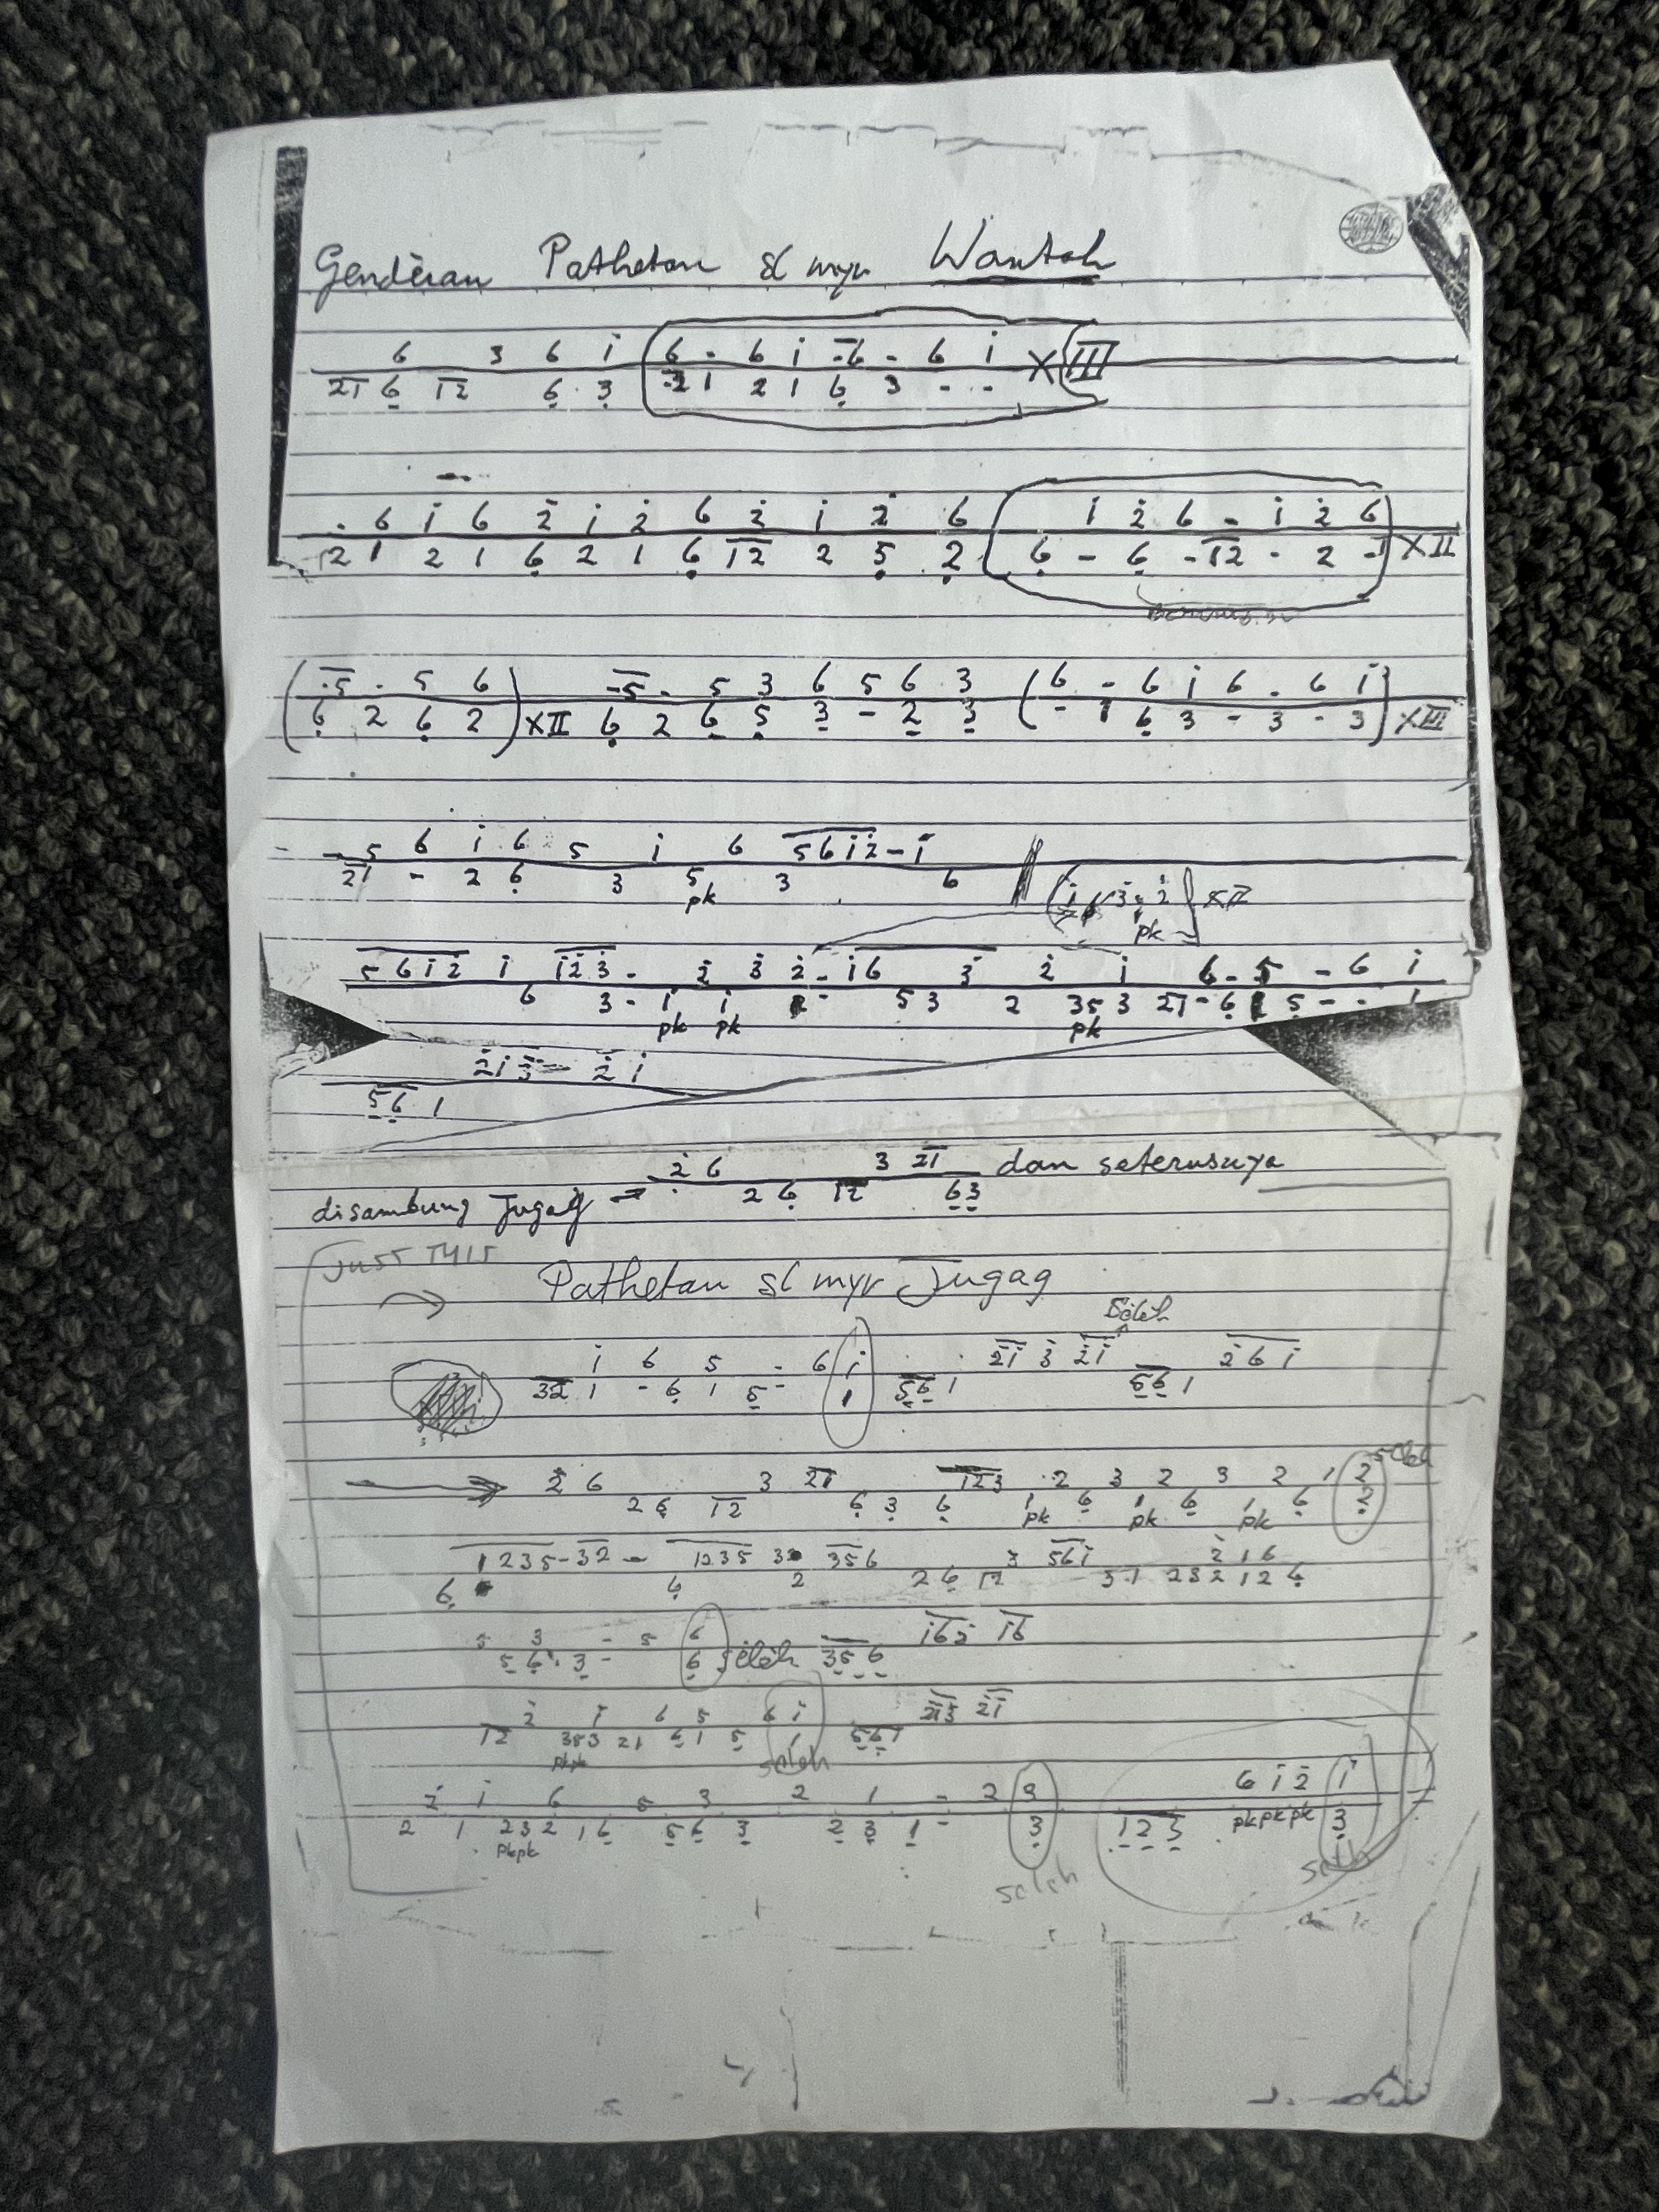 Gendèran Pathetan sl myr Wantah
6 3 6 i̇ 6 - 6 i̇ -6 - 6 i̇ X III
21 6̣ 12 6̣ 3̣ 21 2 1 6̣ 3 - -
. 6 i̇ 6 2̇ i̇ 2̇ 6 2̇ i̇ 2̇ 6 i̇ 2̇ 6 - i̇ 2̇ 6
2 1 2 1 6̣ 2 1 6̣ 12 2 5̣ 2̣ 6̣ - 6̣ - 12 - 2 -1 X II
(.5 . 5 6) -5 . 5 3 6 5 6 3 (6 - 6 i̇ 6 . 6 i̇)
6̣ 2 6̣ 2 X II 6̣ 2 6̣ 5̣ 3̣ - 2̣ 3̣ - 1 6̣ 3 - 3 - 3 X III
- 5 6 i̇ 6 5 i̇ 6 5 6 i̇ 2̇ - i̇
21 - 2 6̣ 3 5 3 6
pk
pk
5 6 i̇ 2̇ i̇ i̇ 2̇ 3̇ - 2̇ 3̇ 2̇ - i̇ 6 3̇ 2̇ i̇ 6 - 5 - 6 i̇
6 3 - i̇ i̇ - 5 3 2 35 3 21 - 6̣ 1 5̣ - - 1
pk pk pk
2̇ i̇ 3̇ 2̇ i̇
5̣6̣ 1
2̇ 6 3 21 dan seterusnya
disambung Jugag → 2 6̣ 12 6̣3̣
JUST THIS
Pathetan sl myr Jugag
Sèlèh
i̇ 6 5 - 6 i̇ 2̇i̇ 3̇ 2̇i̇ 2̇ 6 i̇
32 1 - 6̣ 1 5̣ - 1 5̣6̣ 1 5̣6̣ 1
sèlèh
2̇ 6 3 21 123 .2 3 2 3 2 1 2
2 6̣ 12 6̣ 3̣ 6̣ 1 6̣ 1 6̣ 1 6̣ 2̣
pk pk pk
1235-32 - 1235 3 356 3 56i̇ 2̇ i̇ 6
6̣ 6̣ 2 2 6̣ 12 3 1 2 3 2 1 2 6̣
5 3 - 5 6 i̇62̇ i̇6
5̣ 6̣ . 3̣ - 6̣ sèlèh 3̣5̣6̣
2̇ i̇ 6 5 6 i̇ 2̇i̇3̇ 2̇i̇
12 353 21 6̣ 1 5̣ 1 5̣6̣1
pkpk seleh
2̇ i̇ 6 5 3 2 1 - 2 3 6 i̇ 2̇ i̇
2 1 232 1 6̣ 5̣ 6̣ 3̣ 2̣ 3̣ 1̣ - 3̣ 1̣ 2̣ 3̣ pkpkpk 3̣
pkpk
seleh seleh